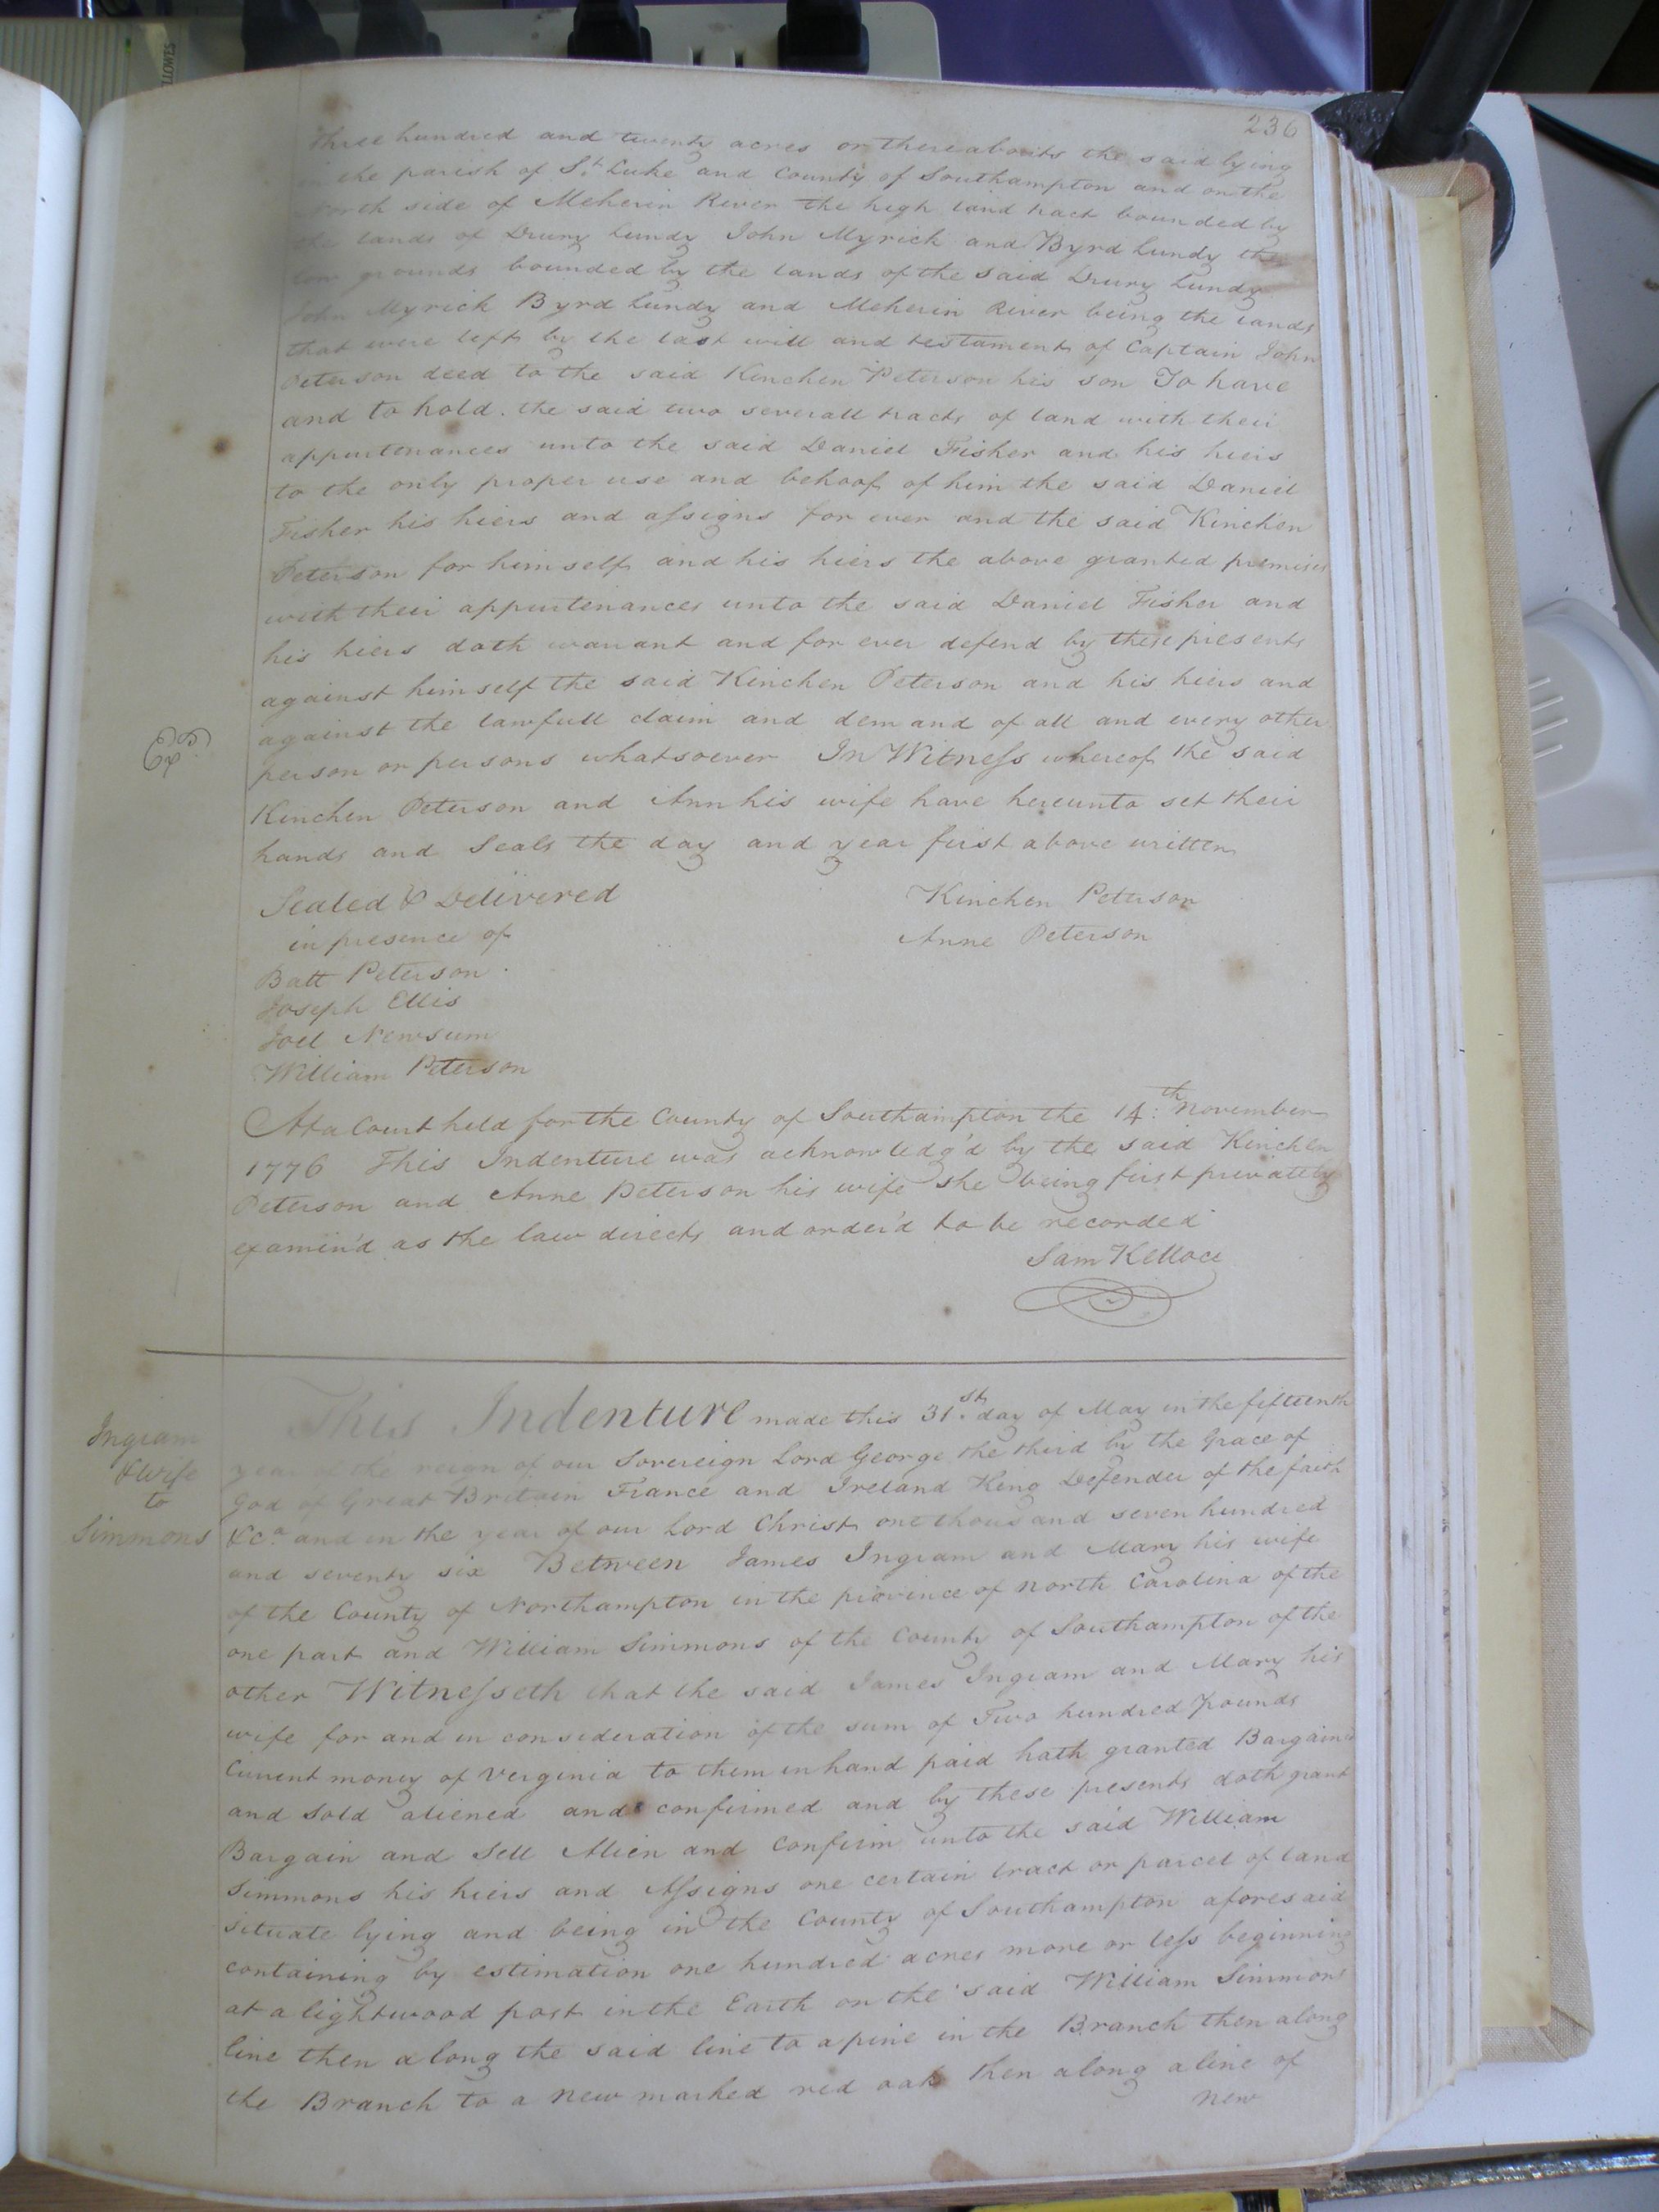 236
three hundred and twenty acres or thereabouts the said lying
in the parish of St. Luke and County of Southampton and on the
North side of Meherin River the high land tract bounded by
the lands of Drury Lundy John Myrick and Byrd Lundy the
low grounds bounded by the lands of the said Drury Lundy
John Myrick Byrd Lundy and Meherin River being the lands
that were left by the last will and testament of Captain John
Peterson deed to the said Kinchen Peterson his son To have
and to hold. the said two severall tracts of land with their
appurtenances unto the said Daniel Fisher and his hiers
to the only proper use and behoof of him the said Daniel
Fisher his hiers and assigns for ever and the said Kinchen
Peterson for himself and his hiers the above granted premises
with their appurtenances unto the said Daniel Fisher and
his hiers doth warrant and for ever defend by these presents
against himself the said Kinchen Peterson and his hiers and
against the lawfull claim and demand of all and every other
person or persons whatsoever In Witness whereof the said
Ex.
Kinchen Peterson and Ann his wife have hereunto set their
hands and Seals the day and year first above written
Sealed & Delivered
Kinchen Peterson
in presence of
Anne Peterson
Batt Peterson
Joseph Ellis
Joel Newsum
William Peterson
At a Court held for the County of Southampton the 14:th November
1776 This Indenture was acknowledg'd by the said Kinchen
Peterson and Anne Peterson his wife she being first privately
examin'd as the law directs and order'd to be recorded
Sam Kelloce
This Indenture made this 31.st day of May in the fifteenth
Ingram
& Wife
to
Simmons
year of the reign of our Sovereign Lord George the third by the Grace of
God of Great Britain France and Ireland King Defender of the faith
&c.a and in the year of our Lord Christ one thousand seven hundred
and seventy six Between James Ingram and Mary his wife
of the County of Northampton in the province of North Carolina of the
one part and William Simmons of the County of Southampton of the
other Witnesseth that the said James Ingram and Mary his
wife for and in consideration of the sum of Two hundred pounds
Current money of Verginia to them in hand paid hath granted Bargain'd
and Sold aliened and confirmed and by these presents doth grant
Bargain and Sell Alien and Confirm unto the said William
Simmons his hiers and Assigns one certain tract or parcel of land
situate lying and being in the County of Southampton aforesaid
containing by estimation one hundred acres more or less beginning
at a lightwood post in the Earth on the said William Simmons
line then along the said line to a pine in the Branch then along
the Branch to a new marked red oak then along a line of
new